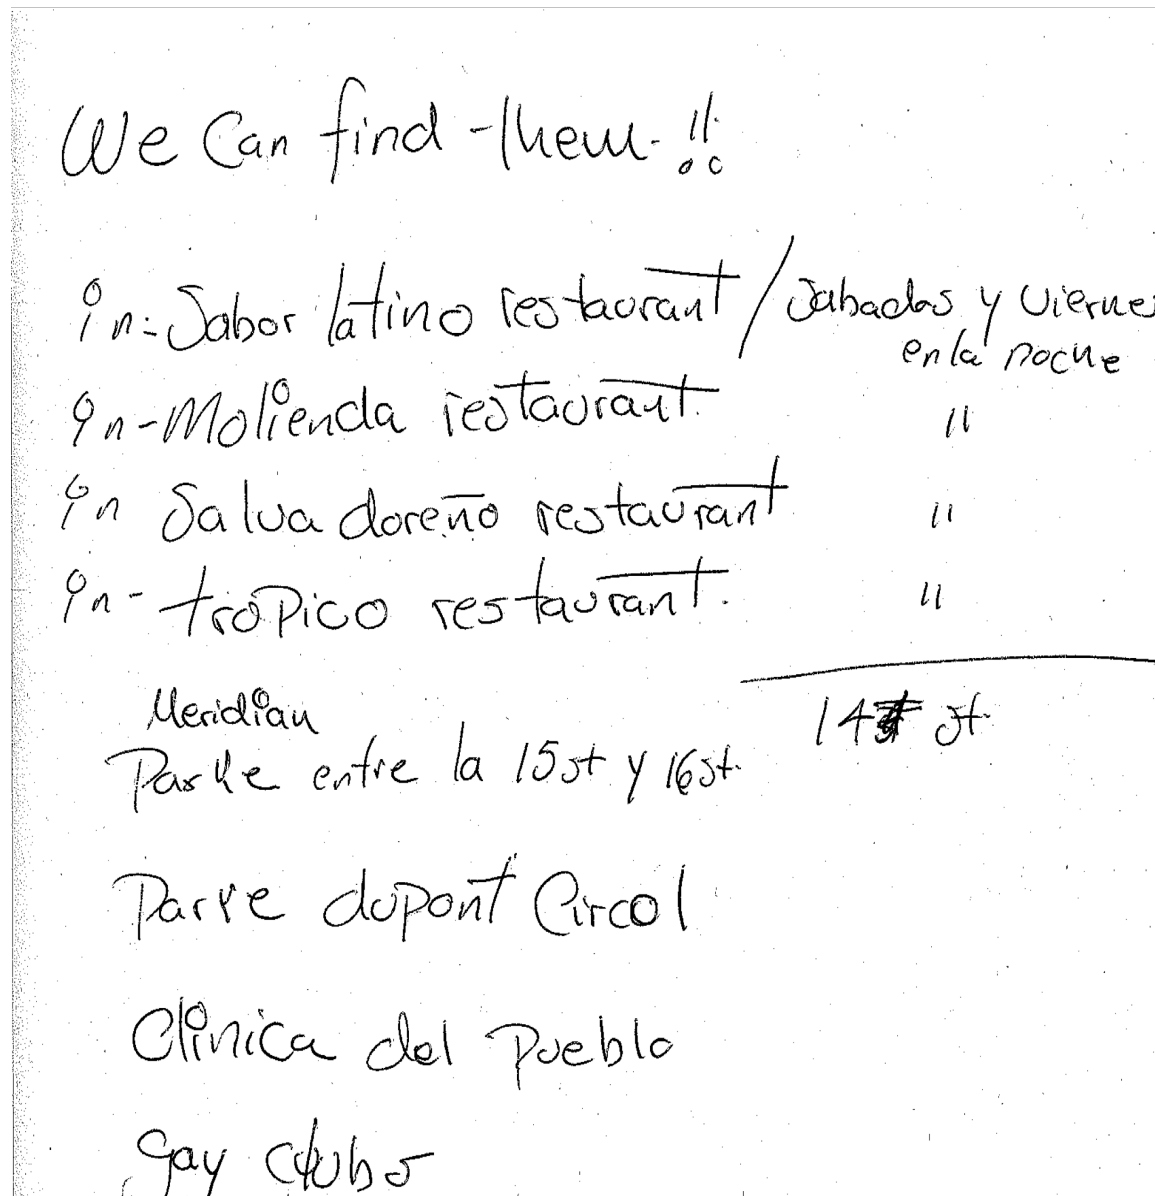 We Can find them !!
in: Sabor latino restaurant / Sabados y Viernes
en la noche
in - Molienda restaurant. "
in Salvadoreño restaurant "
in - tropico restaurant. "
Meridian
14 st.
Parke entre la 15 st y 16 st.
Parke dupont Circol
Clinica del Pueblo
gay clubs